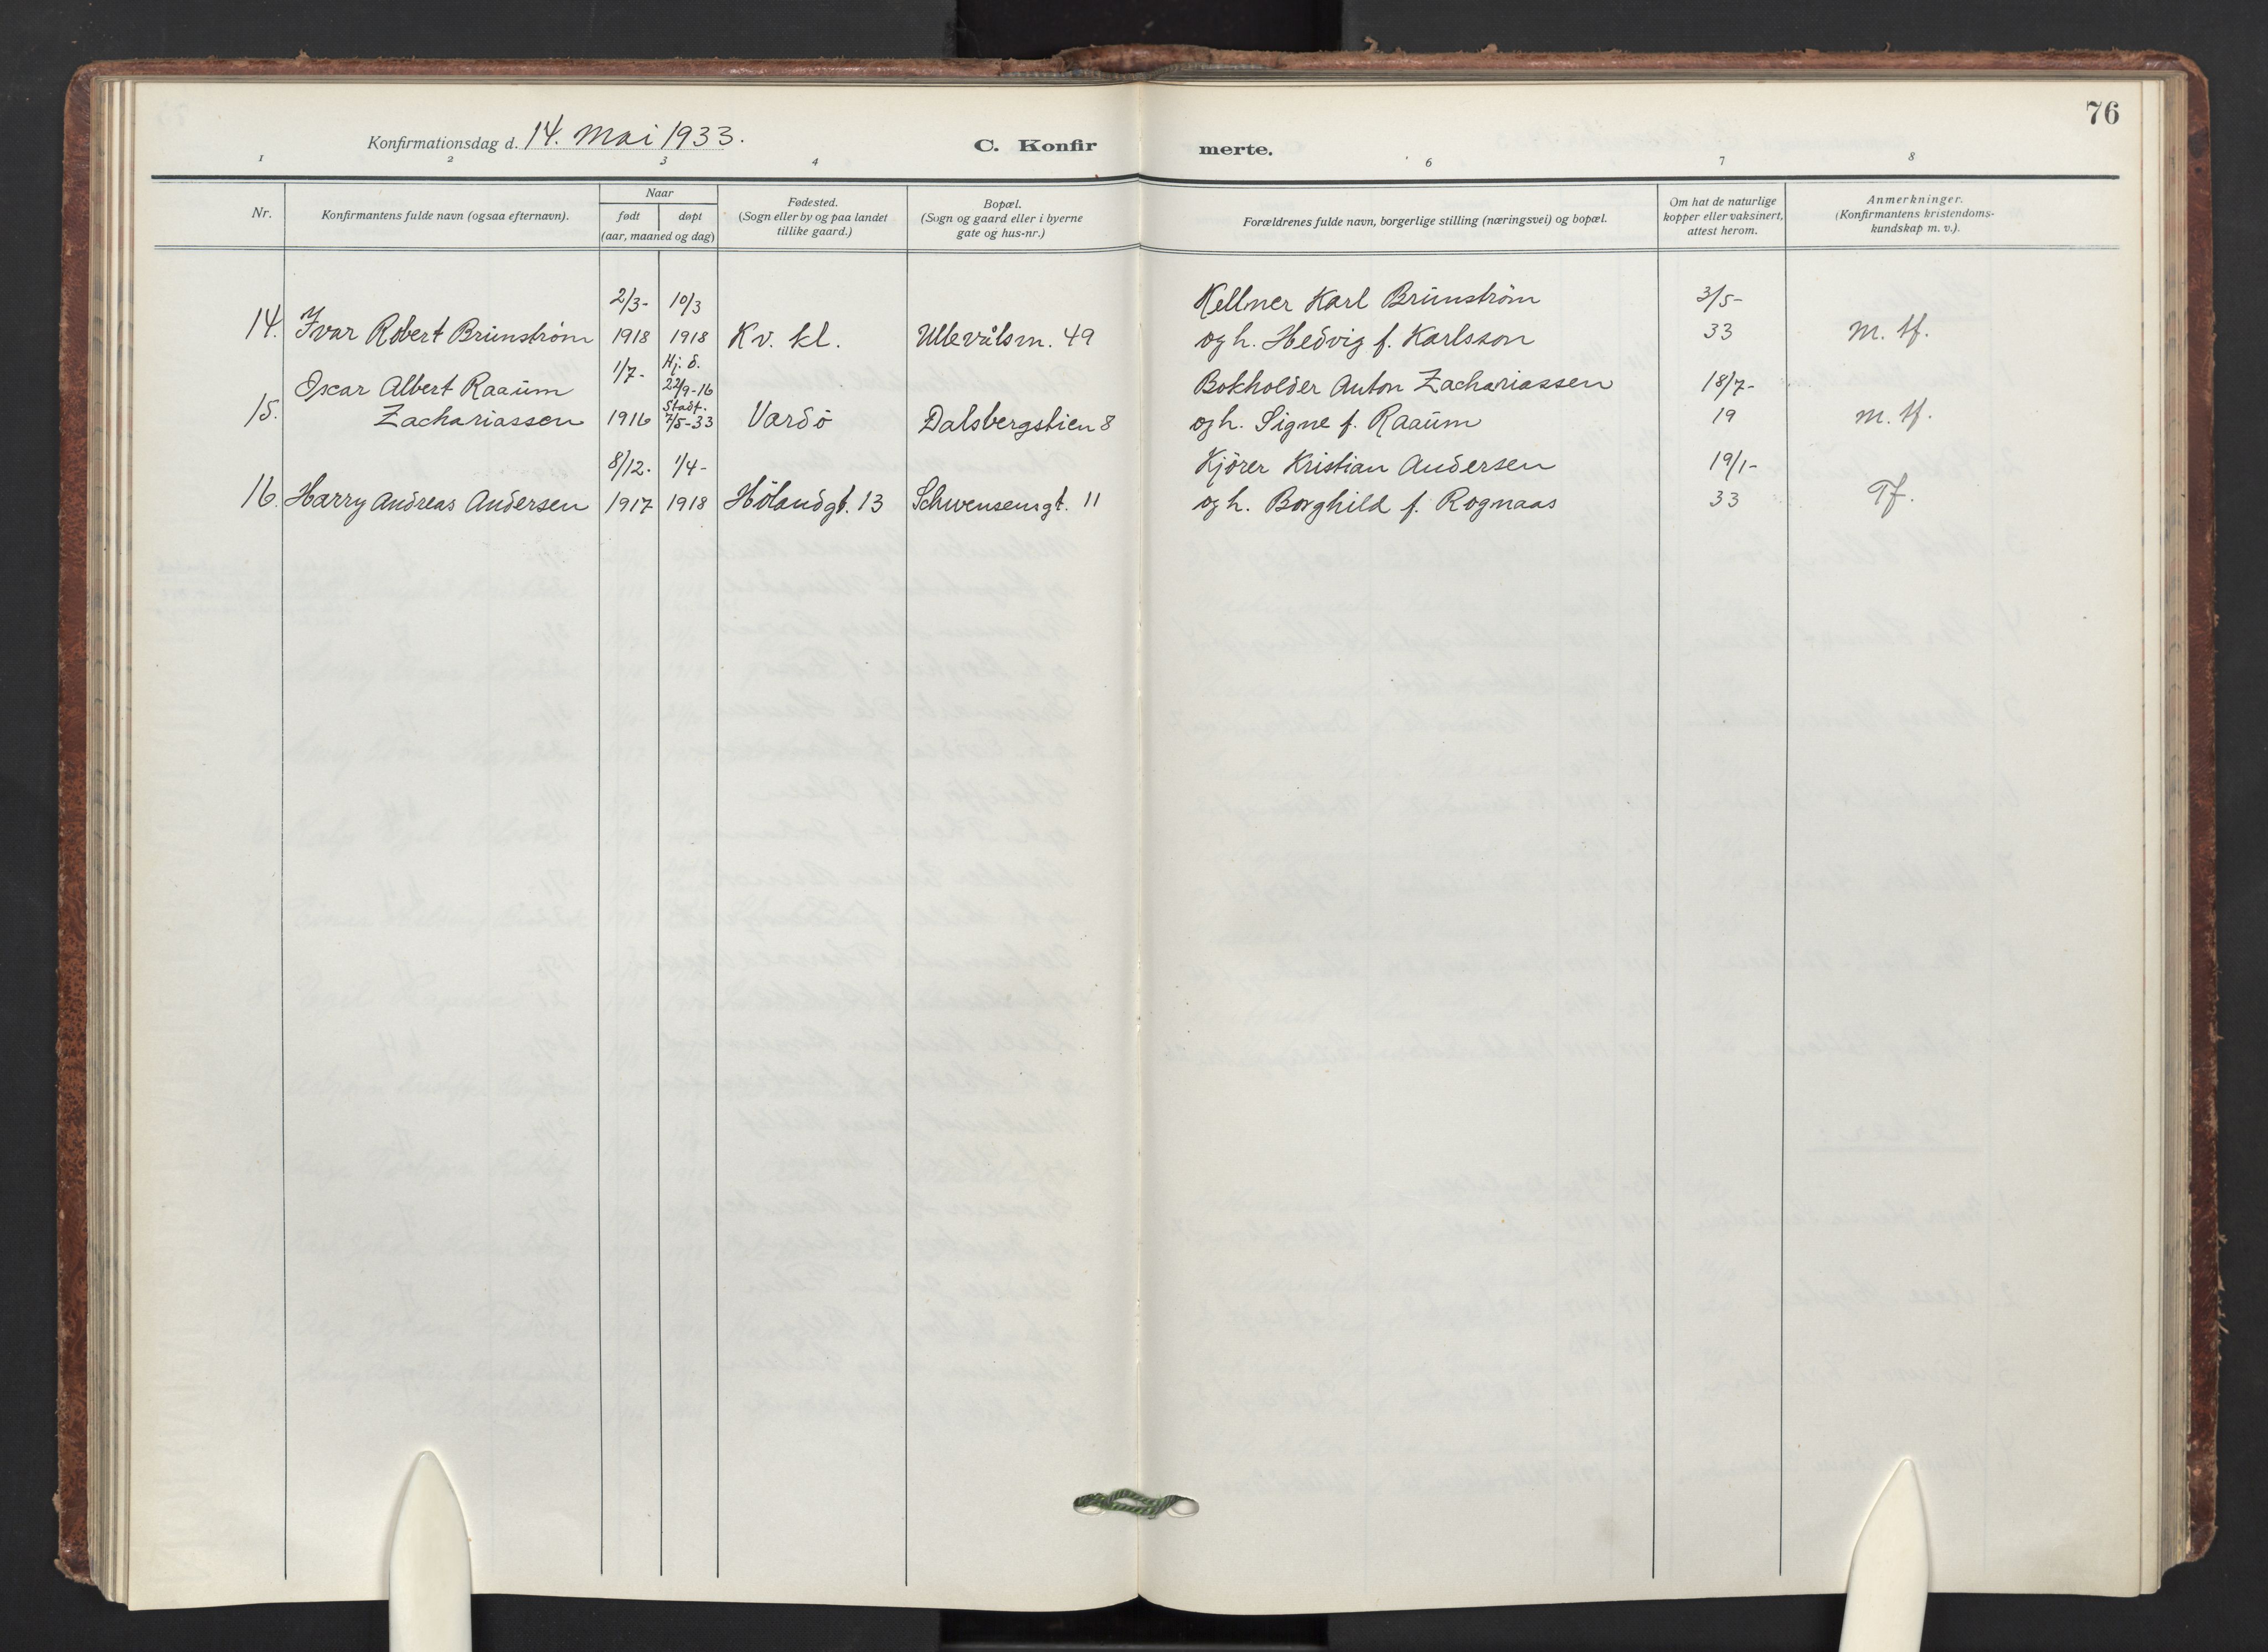 76
Konfirmationsdag d. 14. Mai 1933.
C. Konfirmerte.
1 2 3 4 6 7 8
Nr.
Konfirmantens fulde navn (ogsaa efternavn).
Naar
født døpt
(aar, maaned og dag)
Fødested.
(Sogn eller by og paa landet
tillike gaard.)
Bopæl.
(Sogn og gaard eller i byerne
gate og hus-nr.)
Forældrenes fulde navn, borgerlige stilling (næringsvei) og bopæl.
Om hat de naturlige
kopper eller vaksinert,
attest herom.
Anmerkninger.
(Konfirmantens kristendoms-
kundskap m. v.).
2/3- 10/3 Kellner Karl Brünström 3/5-
14. Ivar Robert Brünström 1918 1918 Kv. kl. Ullevålsv. 49 og h. Hedvig f. Karlsson 33 M. tf.
Oscar Albert Raaum 1/7- Hj. d. 22/9-16 Bokholder Anton Zachariassen 18/7-
15. Zachariassen 1916 Stadf. 7/5-33 Vardö Dalsbergstien 8 og h. Signe f. Raaum 19 M. tf.
8/12. 1/4- Kjörer Kristian Andersen 19/1-
16. Harry Andreas Andersen 1917 1918 Hölandgt. 13 Schwensensgt. 11 og h. Borghild f. Rognaas 33 Tf.